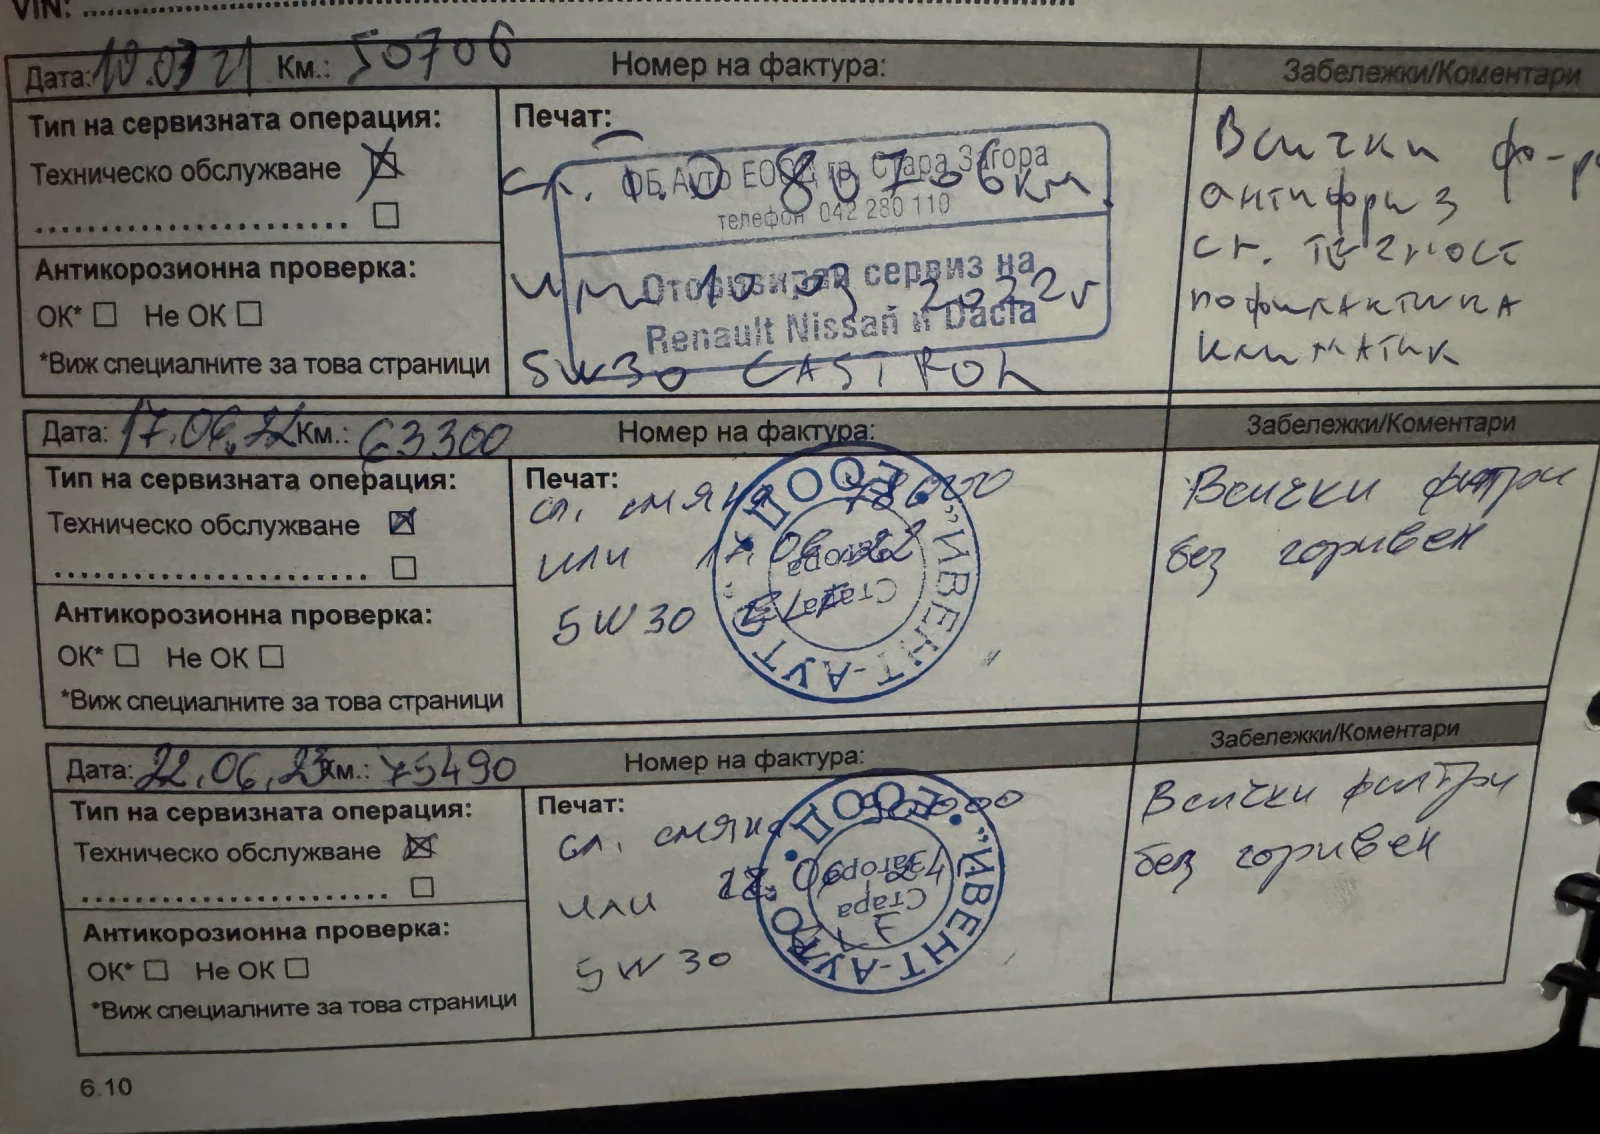 VIN:
Дата: 10.03 21 Км.: 50706 Номер на фактура: Забележки/Коментари
Тип на сервизната операция:
Техническо обслужване
Антикорозионна проверка:
ОК* Не ОК
*Виж специалните за това страници
Печат:
ФБ Авто ЕООД гр. Стара Загора
телефон 042 280 110
Оторизиран сервиз на
Renault Nissan и Dacia
сл. 80706км
или 10 03 2022г
5W30 CASTROL
Всички
антифриз
сп. течност
пофилактика
климатик
Дата: 17.06.22 Км.: 63300 Номер на фактура: Забележки/Коментари
Тип на сервизната операция:
Техническо обслужване
Антикорозионна проверка:
ОК* Не ОК
*Виж специалните за това страници
Печат:
сл. смяна 78000
или 17.06
5W30
"ИВЕНТ-АУТО" ЕООД
Стара Загора
Всички филтри
без горивен
Дата: 22.06.23 Км.: 75490 Номер на фактура: Забележки/Коментари
Тип на сервизната операция:
Техническо обслужване
Антикорозионна проверка:
ОК* Не ОК
*Виж специалните за това страници
Печат:
сл. смяна 90000
или 22.06
5W30
"ИВЕНТ-АУТО" ЕООД
Стара Загора
Всички филтри
без горивен
6.10